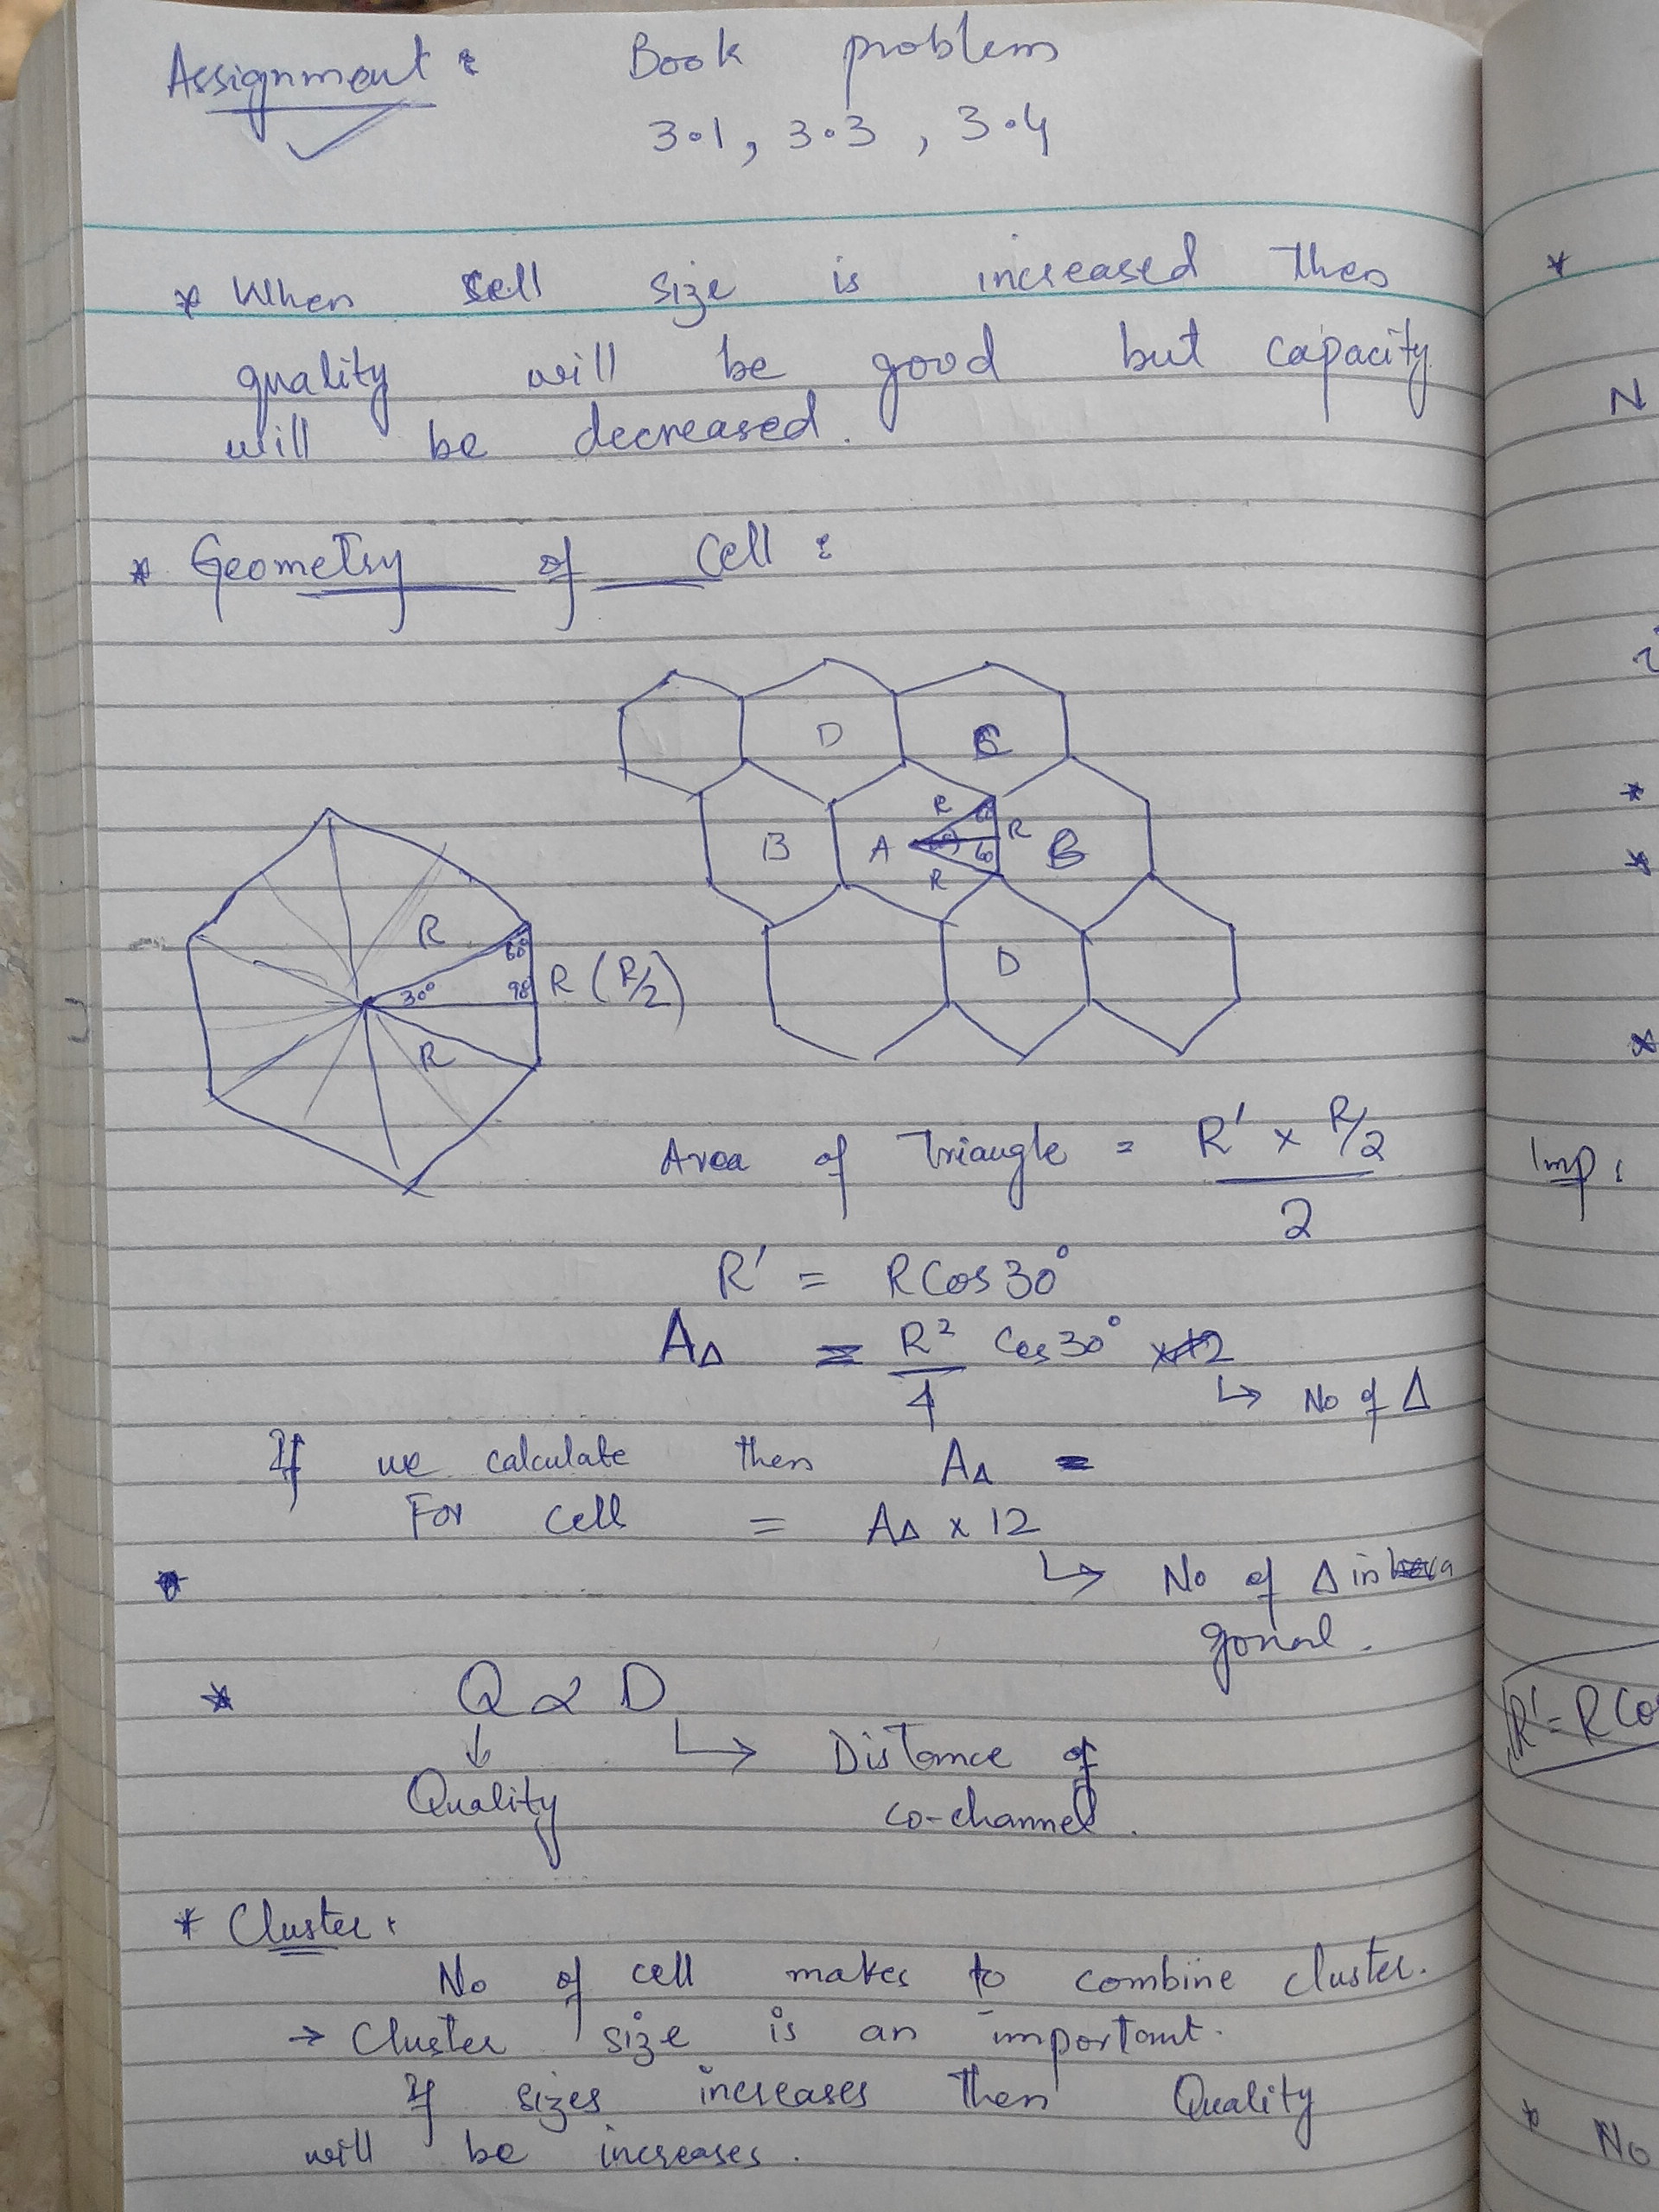 Assignment : Book problems
3.1, 3.3, 3.4
* When cell size is increased then
quality will be good but capacity
will be decreased.
* Geometry of Cell :
D C
R
B A 60° R B
60
R
R
60°
30° 90° R (R/2)
R
D
Area of Triangle = R' × R/2
2
R' = R Cos 30°
A∆ = R² Cos 30°
4
↳ No of ∆
If we calculate then A∆ =
For cell = A∆ × 12
↳ No of ∆ in
gonal.
* Q ∝ D
↓ ↳ Distance of
Quality co-channel.
* Cluster :
No of cell makes to combine cluster.
→ Cluster size is an important.
If sizes increases then Quality
will be increases.
*
N
*
*
*
Imp :
R' = R Co
* No